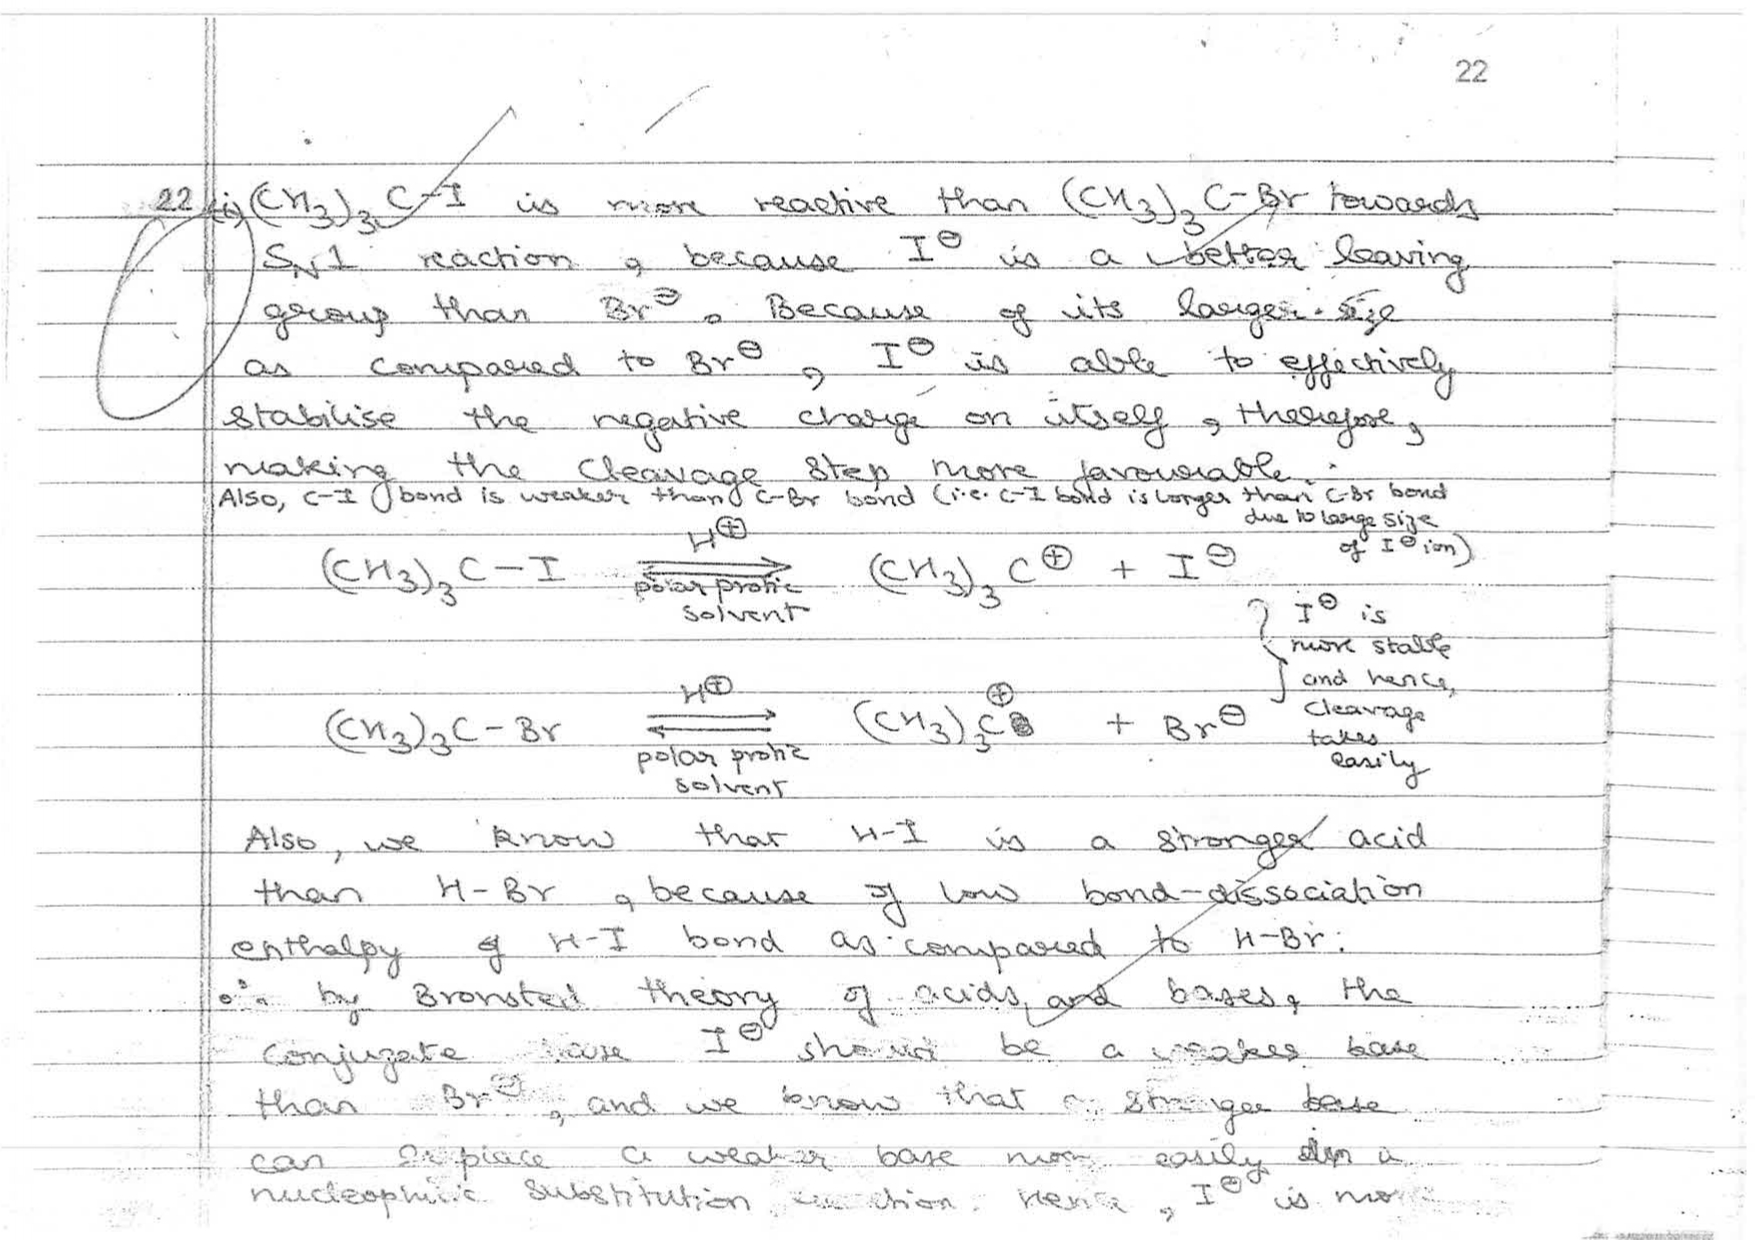 22
22 (i) (CH3)3C-I is more reactive than (CH3)3C-Br towards
SN1 reaction, because I⊖ is a better leaving
group than Br⊖. Because of its larger size
as compared to Br⊖, I⊖ is able to effectively
stabilise the negative charge on itself, therefore,
making the cleavage step more favourable.
Also, C-I bond is weaker than C-Br bond (i.e. C-I bond is longer than C-Br bond
due to large size
of I⊖ ion)
H⊕
(CH3)3C-I ⇌ (CH3)3C⊕ + I⊖
polar protic
solvent
{ I⊖ is
more stable
and hence,
cleavage
takes
easily
H⊕
(CH3)3C-Br ⇌ (CH3)3C⊕ + Br⊖
polar protic
solvent
Also, we know that H-I is a stronger acid
than H-Br, because of low bond-dissociation
enthalpy of H-I bond as compared to H-Br.
∴ by Bronsted theory of acids and bases, the
conjugate base I⊖ should be a weaker base
than Br⊖, and we know that a stronger base
can replace a weaker base more easily in a
nucleophilic substitution reaction. Hence, I⊖ is more